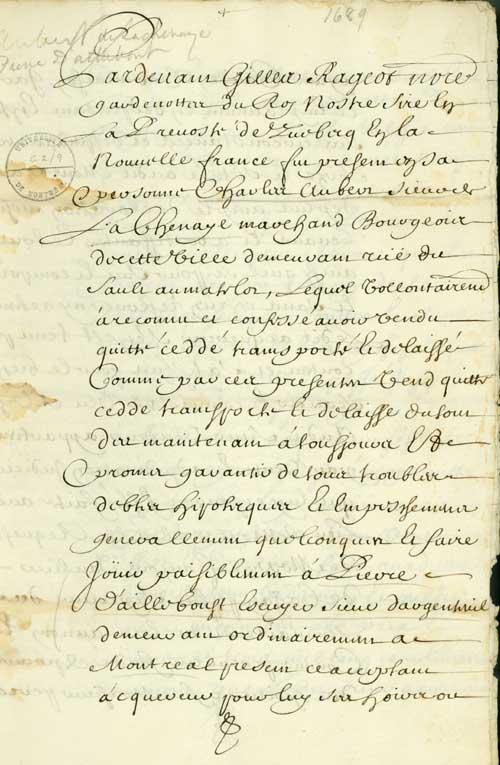 1689
Aubert de Lachenaye
Pierre D'aillebout
UNIVERSITÉ
G2/9
DE MONTREAL
Pardevant Gilles Rageot Not.re
gardenottes du Roy Nostre Sire En
La Prevosté de Quebecq En la
Nouvelle france fut present en sa
personne Charles Aubert Sieur de
La Chenaye marchand Bourgeois
de cette Ville demeurant rüe du
Sault au matelot, Lequel Vollontairem.t
a reconnu et confessé avoir vendu
quitté ceddé transporté et delaissé
Comme par ces presentes Vend quitte
cedde transporte et delaisse du tout
des maintenant à tousjours Et
promet garantir de tous troubles
debtes hipotecques Et Empeschemens
generallement quelconques Et faire
Joüir paisiblement à Pierre
d'Ailleboust Escuyer Sieur d'argenteuil
demeurant ordinairement a
Montreal present ce acceptant
acquereur pour luy ses hoirs ou